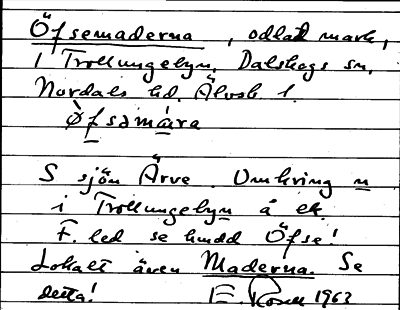 Öfsemaderna, odlad mark,
i Trollungebyn, Dalskogs sn,
Nordals hd. Älvsb. l.
Øfsəmàra
S sjön Ärve. Omkring n
i Trollungebyn å ek.
F. led se hmdd Öfse!
Lokalt även Maderna. Se
detta! E. Rosell 1963